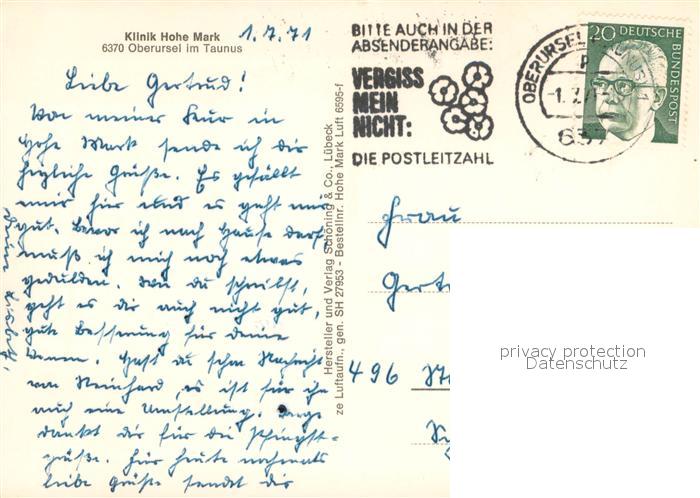 Klinik Hohe Mark
6370 Oberursel im Taunus
1.7.71
Liebe Gertrud!
Von meiner Kur in
Hohe Mark sende ich dir
herzliche Grüße. Es gefällt
mir hier und es geht mir
gut. Bevor ich nach Hause darf,
muß ich mich noch etwas
gedulden. Wie du schreibst,
geht es dir auch nicht gut,
gute Besserung für deine
Venen. Hast du schon Nachricht
von Reinhard, es ist für ihn
auch eine Umstellung.
dankt dir für die Pfingst-
grüße. Für heute nochmals
liebe Grüße sendet dir
Deine
Hersteller und Verlag Schöning & Co., Lübeck
ze Luftaufn., gen. SH 27953 - Bestellnr. Hohe Mark Luft 6595-f
BITTE AUCH IN DER
ABSENDERANGABE:
VERGISS
MEIN
NICHT:
DIE POSTLEITZAHL
OBERURSEL
-1.7.71
637
20 DEUTSCHE
BUNDESPOST
Frau
Gert
496 St
privacy protection
Datenschutz